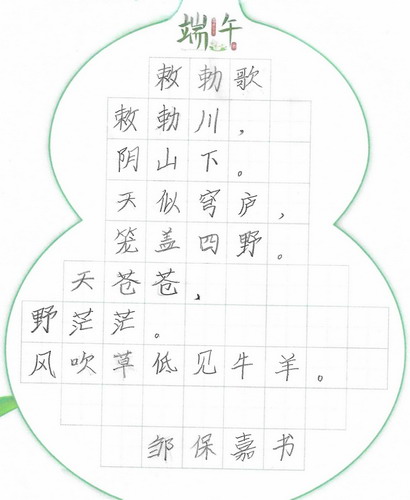 端午
敕勒歌
敕勒川，
阴山下。
天似穹庐，
笼盖四野。
天苍苍，
野茫茫。
风吹草低见牛羊。
邹保嘉书